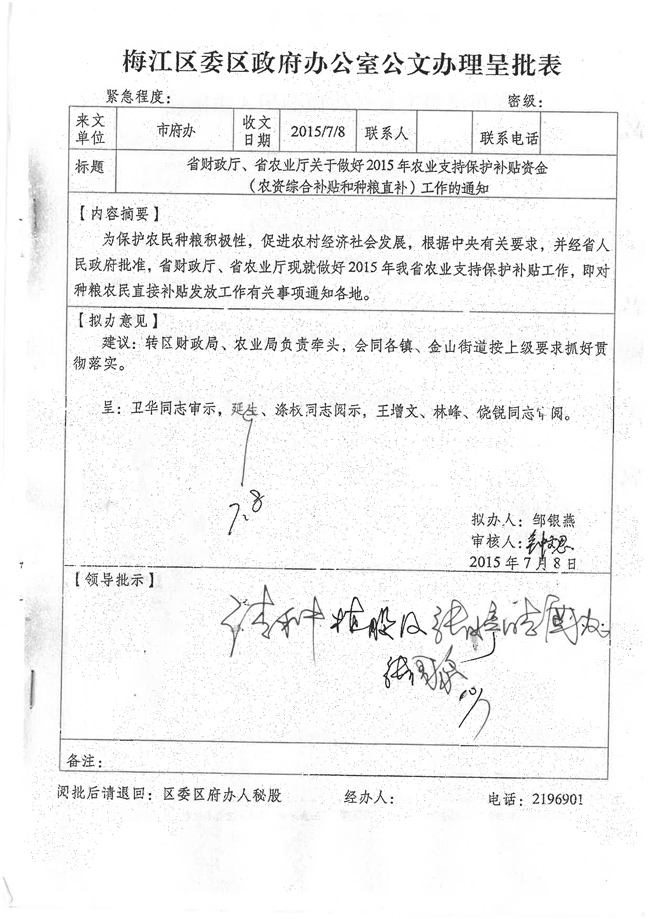 梅江区委区政府办公室公文办理呈批表
紧急程度： 密级：
来文单位 市府办 收文日期 2015/7/8 联系人 联系电话
标题 省财政厅、省农业厅关于做好2015年农业支持保护补贴资金
（农资综合补贴和种粮直补）工作的通知
【内容摘要】
为保护农民种粮积极性，促进农村经济社会发展，根据中央有关要求，并经省人
民政府批准，省财政厅、省农业厅现就做好2015年我省农业支持保护补贴工作，即对
种粮农民直接补贴发放工作有关事项通知各地。
【拟办意见】
建议：转区财政局、农业局负责牵头，会同各镇、金山街道按上级要求抓好贯
彻落实。
呈：卫华同志审示，延生、涤权同志阅示，王增文、林峰、饶锐同志审阅。
7.8
拟办人：邹银燕
审核人：
2015年7月8日
【领导批示】
请种植股及张
10/7
备注：
阅批后请退回：区委区府办人秘股 经办人： 电话：2196901